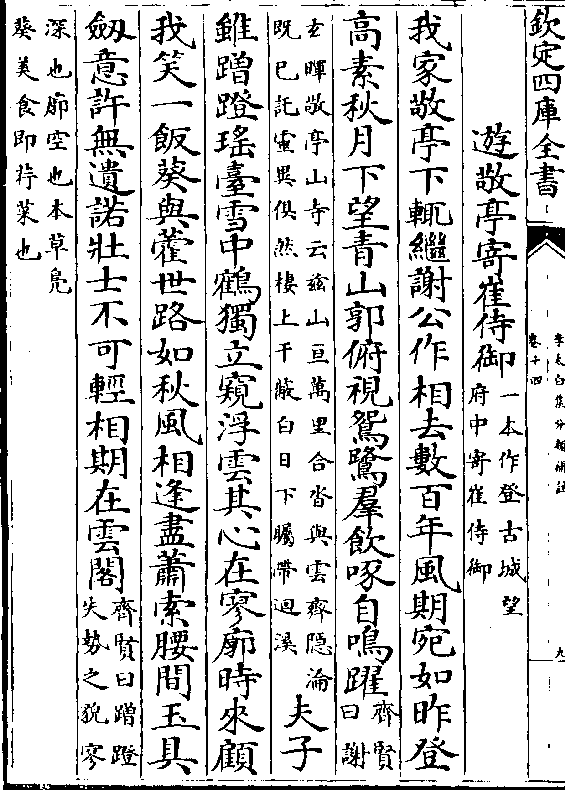 欽定四庫全書
李太白集分類補註
卷十四
九
遊敬亭寄崔侍御
一本作登古城望
府中寄崔侍御
我家敬亭下輒繼謝公作相去數百年風期宛如昨登
高素秋月下望青山郭俯視鴛鷺羣飲啄自鳴躍
齊賢
曰謝
玄暉敬亭山寺云兹山亘萬里合沓與雲齊隠淪
既已託靈異俱然棲上干蔽白日下矚帶迴溪
夫子
雖蹭蹬瑤臺雪中鶴獨立窺浮雲其心在寥廓時來顧
我笑一飯葵與藿世路如秋風相逢盡蕭索腰間玉具
劔意許無遺諾壯士不可輕相期在雲閣
齊賢曰蹭蹬
失勢之貌寥
深也廓空也本草鳬
葵美食即荇菜也